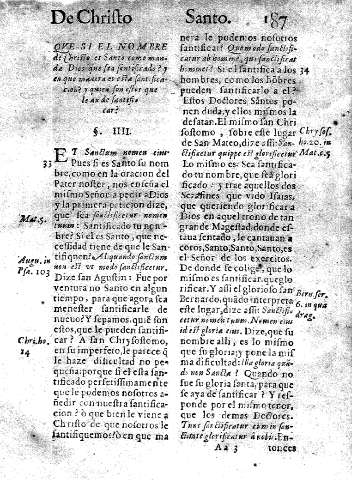 De Christo
Santo. 187
QVE SI EL NOMBRE
de Christo es Santo como man-
da Dios que sea sentificado? y
en que manera es esta santifica-
cion? y quien son estos que
le an de santifi-
car?
§. IIII.
33
ET Sanctum nomen eius
Pues si es Santo su nom
bre, como en la oracion del
Pater noster, nos enseña el
mismo Señor a pedir a Dios
y la primera peticion dize,
Mat. 5.
que sea sanctificetur nomen
tuum: Santificado tu nom-
bre? Si el es Santo, que ne-
cessidad tiene de que le San-
tifiquen? Aliquando sanctum
Augu. in
Psa. 103
non est vt modo sanctificetur.
Dize san Agustin: Fue por
ventura no Santo en algun
tiempo, para que agora sea
menester santificarle de
nueuo? Y sepamos, què son
estos, que le pueden santifi-
Chri. ho.
14
car? A san Chrysostomo,
en su imperfeto, le parece q̃
se haze dificultad no pe-
queña: porque si el esta san-
tificado perfetissimamente
que le podemos nosotros a-
ñadir con nuestra santifica-
cion? ò que bien le viene a
Christo de que nosotros le
santifiquemos? ò en que ma
nera le podemos nosotros
santificar? Quomodo sanctifi-
catur ab homine, qui sanctificat
hominem? Si el santifica a los
34
hombres, como los hõbres
pueden santificarlo a el?
Estos Doctores Santos po-
nen duda, y ellos mismos la
desatan. El mismo san Chry
Chrysos.
ho. 20. in
Mat. c. 5
sostomo, sobre este lugar
de San Mateo, dize assi: San-
ctificetur quippe est glorificetur
Lo mismo es: Sea santifica-
do tu nombre, que sea glori
ficado: y trae aquellos dos
Serafines que vido Isaias,
que queriendo glorificar a
Dios en aquel trono de tan
grande Magestad, donde es-
taua sentado, le cantauan a
coros, Santo, Santo, Santo, es
el Señor de los exercitos.
De donde se colige, que lo
mismo es santificar, que glo
rificar. Y assi el glorioso san
Bernardo, quãdo interpreta
Bern. ser
6. in quà
drag.
este lugar, dize assi: Sanctifi-
cetur nomen tuum. Nomen eius
id est gloria eius. Dize, que su
nombre alli, es lo mismo
que su gloria; y pone la mis
ma dificultad: Illa gloria quã-
do non Sancta? Quando no
fue su gloria santa, para que
se aya de santificar? Y res-
ponde por el mismo tenor,
que los demas Doctores.
Tunc sanctificatur cum in san-
ctitate glorificatur à nobis. En-
Aa 3
tonces